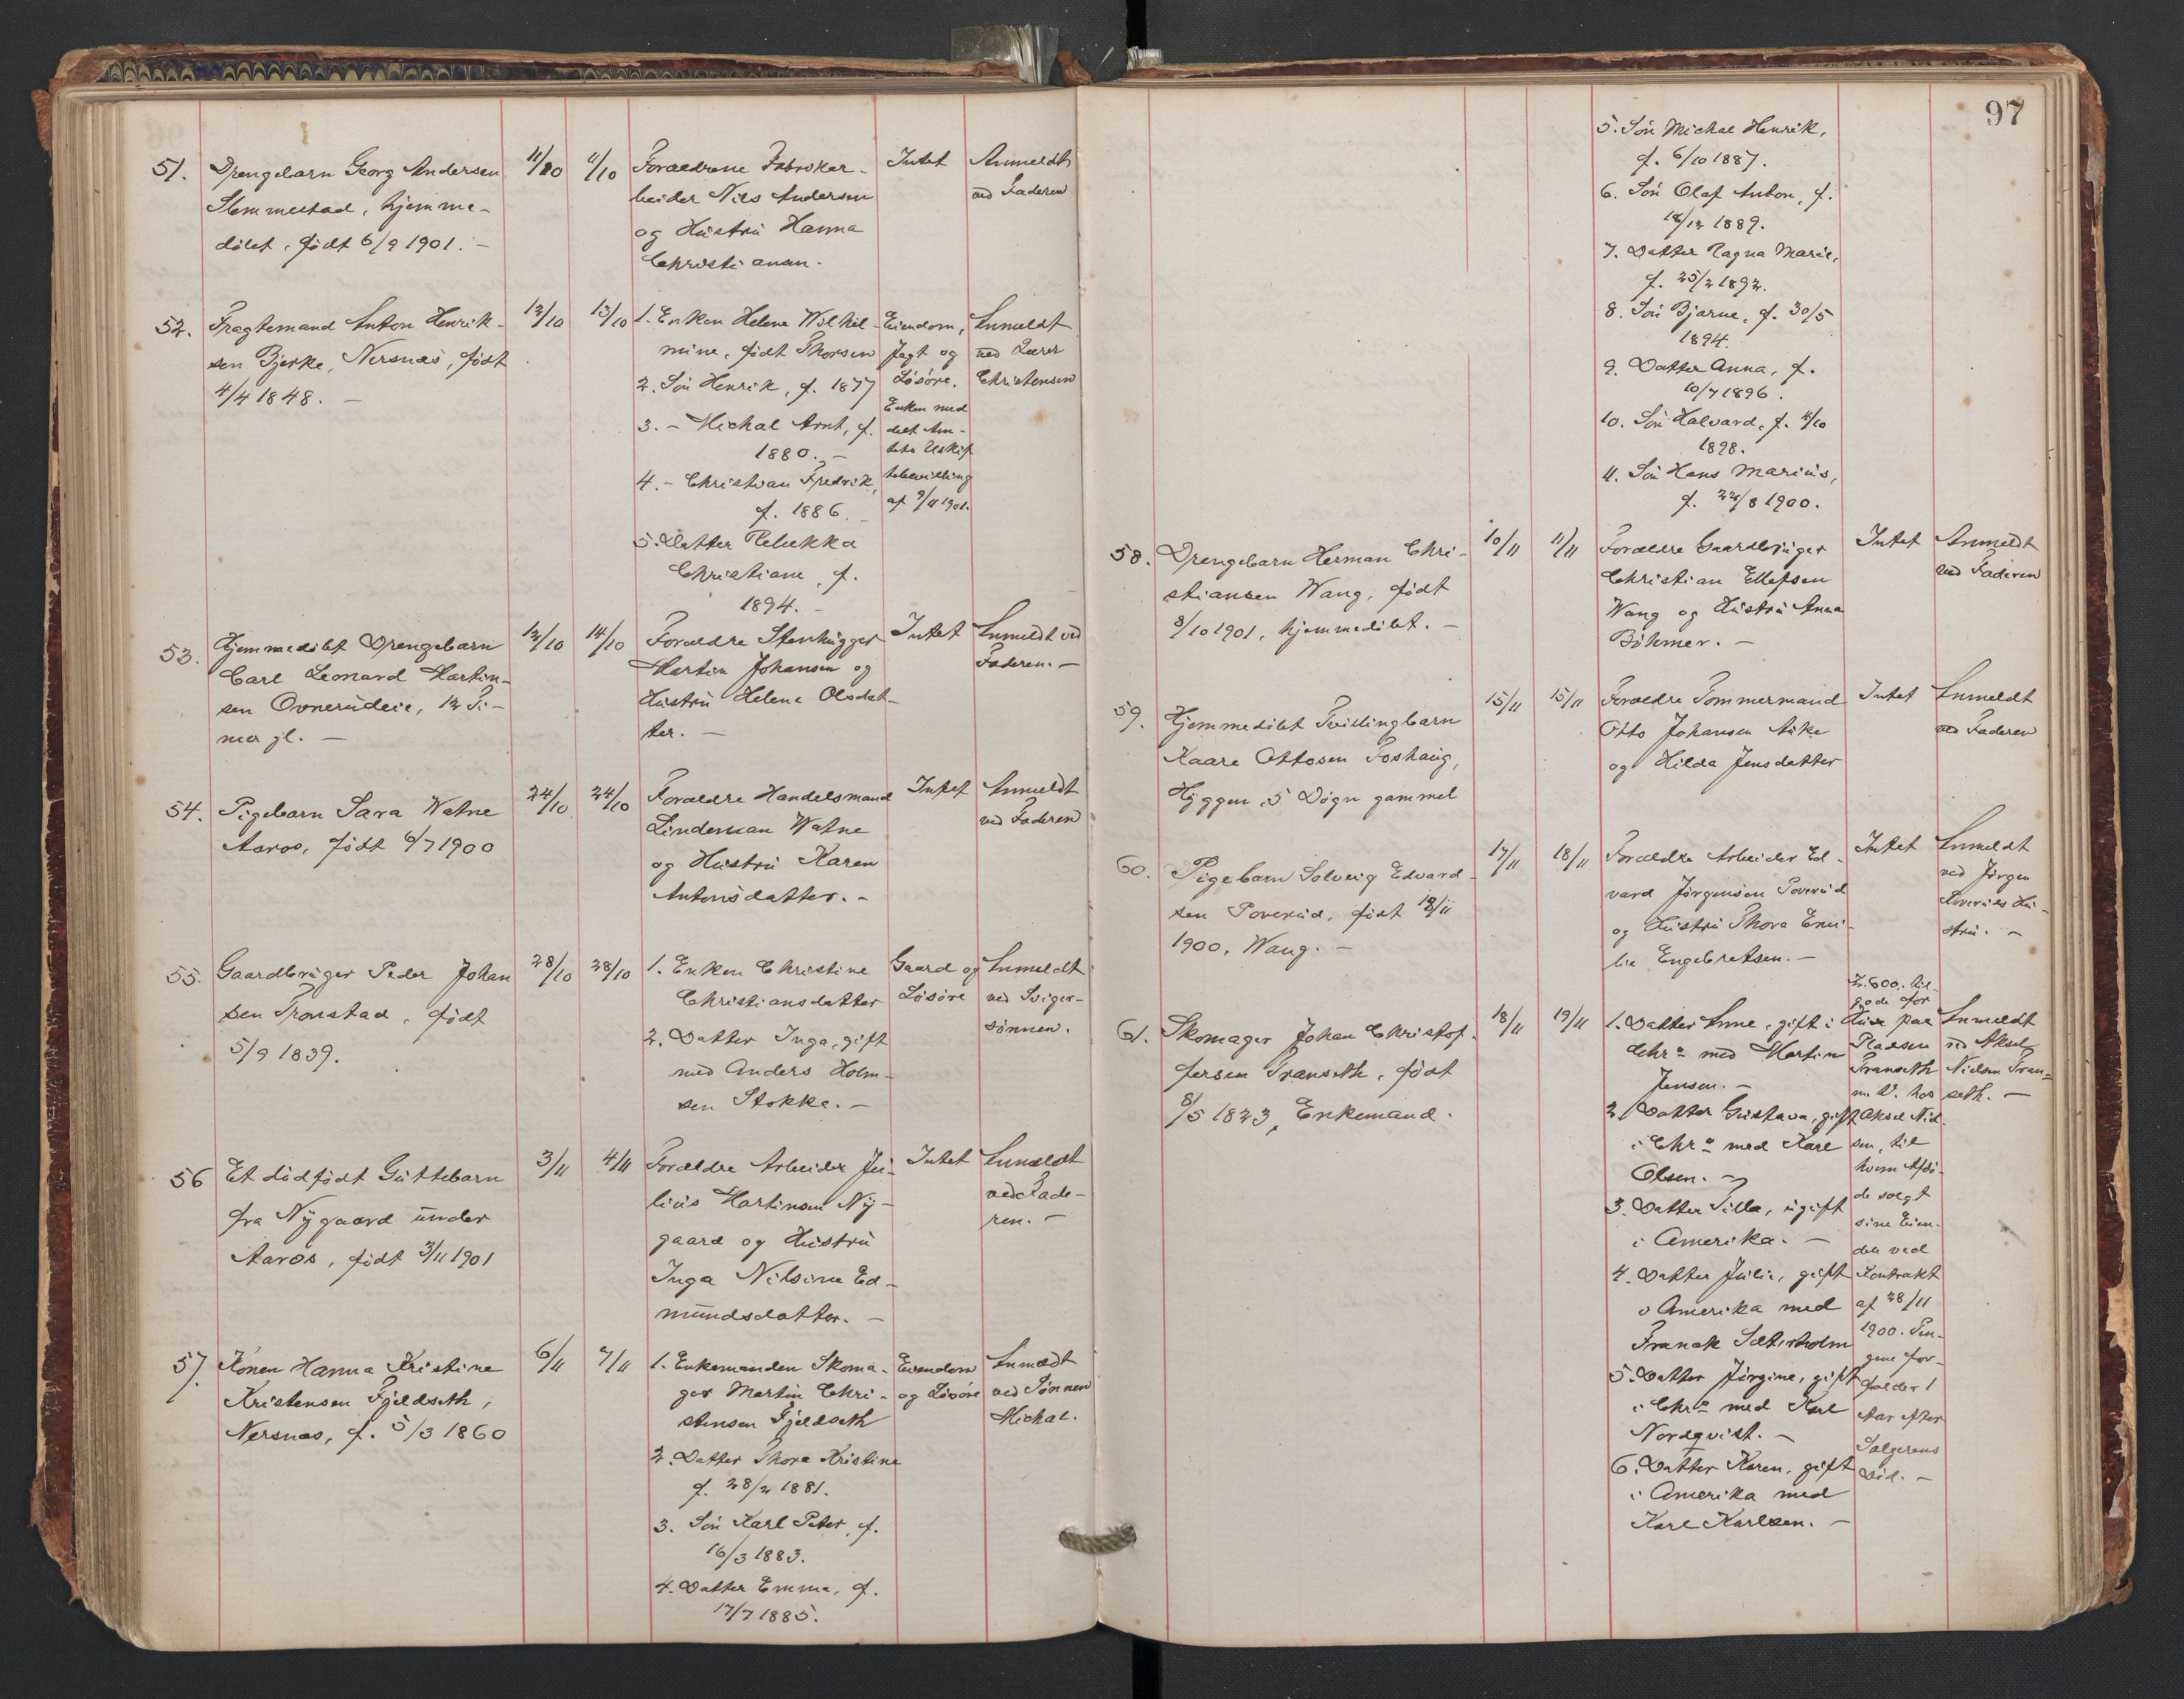 51.
Drengebarn Georg Andersen
Slemmestad, hjemme-
døbt, født 6/9 1901. -
11/10
11/10
Forældrene Fabrikar-
beider Nils Andersen
og Hustru Hanna
Christiansen.
Intet
Anmeldt
ved Faderen
52.
Fragtemand Anton Henrik-
sen Bjerke, Nersnæs, født
4/4 1848. -
12/10
13/10
1. Enken Helene Wilhel-
mine, født Thorsen
2. Søn Henrik, f. 1877
3. - Michal Arnt, f.
1880. -
4. - Christian Fredrik,
f. 1886. -
5. Datter Rebekka
Christiane, f.
1894. -
Eiendom,
Jagt og
Løsøre.
Enken med-
delt Am-
tets Uskif-
tebevilling
af 9/11 1901.
Anmeldt
ved Lærer
Christensen
53.
Hjemmedøbt Drengebarn
Carl Leonard Martin-
sen Ovnerudeie, 12 Ti-
mer gl. -
12/10
14/10
Forældre Stenhugger
Martin Johansen og
Hustru Helene Olsdat-
ter. -
Intet
Anmeldt ved
Faderen. -
54.
Pigebarn Sara Watne
Aaros, født 6/7 1900
24/10
24/10
Forældre Handelsmand
Lindeman Watne
og Hustru Karen
Antonsdatter. -
Intet
Anmeldt
ved Faderen
55.
Gaardbruger Peder Johan
sen Tronstad, født
5/9 1839.
28/10
28/10
1. Enken Christine
Christiansdatter
2. Datter Inga, gift
med Anders Holm-
sen Stokke. -
Gaard og
Løsøre
Anmeldt
ved Sviger-
sønnen.
56
Et dødfødt Guttebarn
fra Nygaard under
Aaros, født 3/11 1901
3/11
4/11
Forældre Arbeider Ju-
lius Martinsen Ny-
gaard og Hustru
Inga Nilsine Ed-
mundsdatter. -
Intet
Anmeldt
ved Fade-
ren. -
57.
Konen Hanna Kristine
Kristensen Fjeldseth,
Nersnæs, f. 5/3 1860
6/11
7/11
1. Enkemanden Skoma-
ger Martin Chri-
stensen Fjeldseth
2. Datter Thora Kristine
f. 28/2 1881.
3. Søn Karl Peter, f.
16/3 1883.
4. Datter Emma, f.
17/7 1885.
Eiendom
og Løsøre
Anmeldt
ved Sønnen
Michal.
97
5. Søn Michal Henrik,
f. 6/10 1887.
6. Søn Olaf Anton, f.
18/12 1889.
7. Datter Ragna Marie,
f. 25/2 1892.
8. Søn Bjarne, f. 30/5
1894.
9. Datter Anna, f.
10/7 1896.
10. Søn Halvard, f. /10
1898.
11. Søn Hans Marius,
f. 22/8 1900.
58.
Drengebarn Herman Chri-
stiansen Wang, født
8/10 1901, hjemmedøbt. -
10/11
11/11
Forældre Gaardbruger
Christian Ellefsen
Wang og Hustru Anna
Böhmer. -
Intet
Anmeldt
ved Faderen
59.
Hjemmedøbt Tvillingbarn
Kaare Ottosen Foshaug,
Hyggen, 5 Døgn gammel
15/11
15/11
Forældre Tømmermand
Otto Johansen Aike
og Hilda Jensdatter
Intet
Anmeldt
ved Faderen
60.
Pigebarn Solveig Edvard-
sen Poverud, født 18/11
1900, Wang. -
17/11
18/11
Forældre Arbeider Ed-
vard Jørgensen Poverud
og Hustru Thora Emi-
lie Engebretsen. -
Intet
Anmeldt
ved Jørgen
Poveruds Hu-
stru. -
61.
Skomager Johan Christof-
fersen Transeth, født
8/5 1823, Enkemand.
18/11
19/11
1. Datter Anne, gift i
Chra med Martin
Jensen. -
2. Datter Gustava, gift
i Chra med Karl
Olsen. -
3. Datter Tilla, ugift
i Amerika. -
4. Datter Julie, gift
i Amerika med
Franck Sæterholm
5. Datter Jørgine, gift
i Chra med Karl
Nordqvist. -
6. Datter Karen, gift
i Amerika med
Karl Karlsen. -
Kr. 600. til-
gode for
Hus paa
Pladsen
Transeth
m. V. hos
Aksel Niel-
sen, til
hvem Afdø-
de solgt
sine Eien-
dele ved
Kontrakt
af 28/11
1900. Pen-
gene for-
falder 1
Aar efter
Sælgerens
Død. -
Anmeldt
ved Aksel
Nielsen Tran-
seth. -